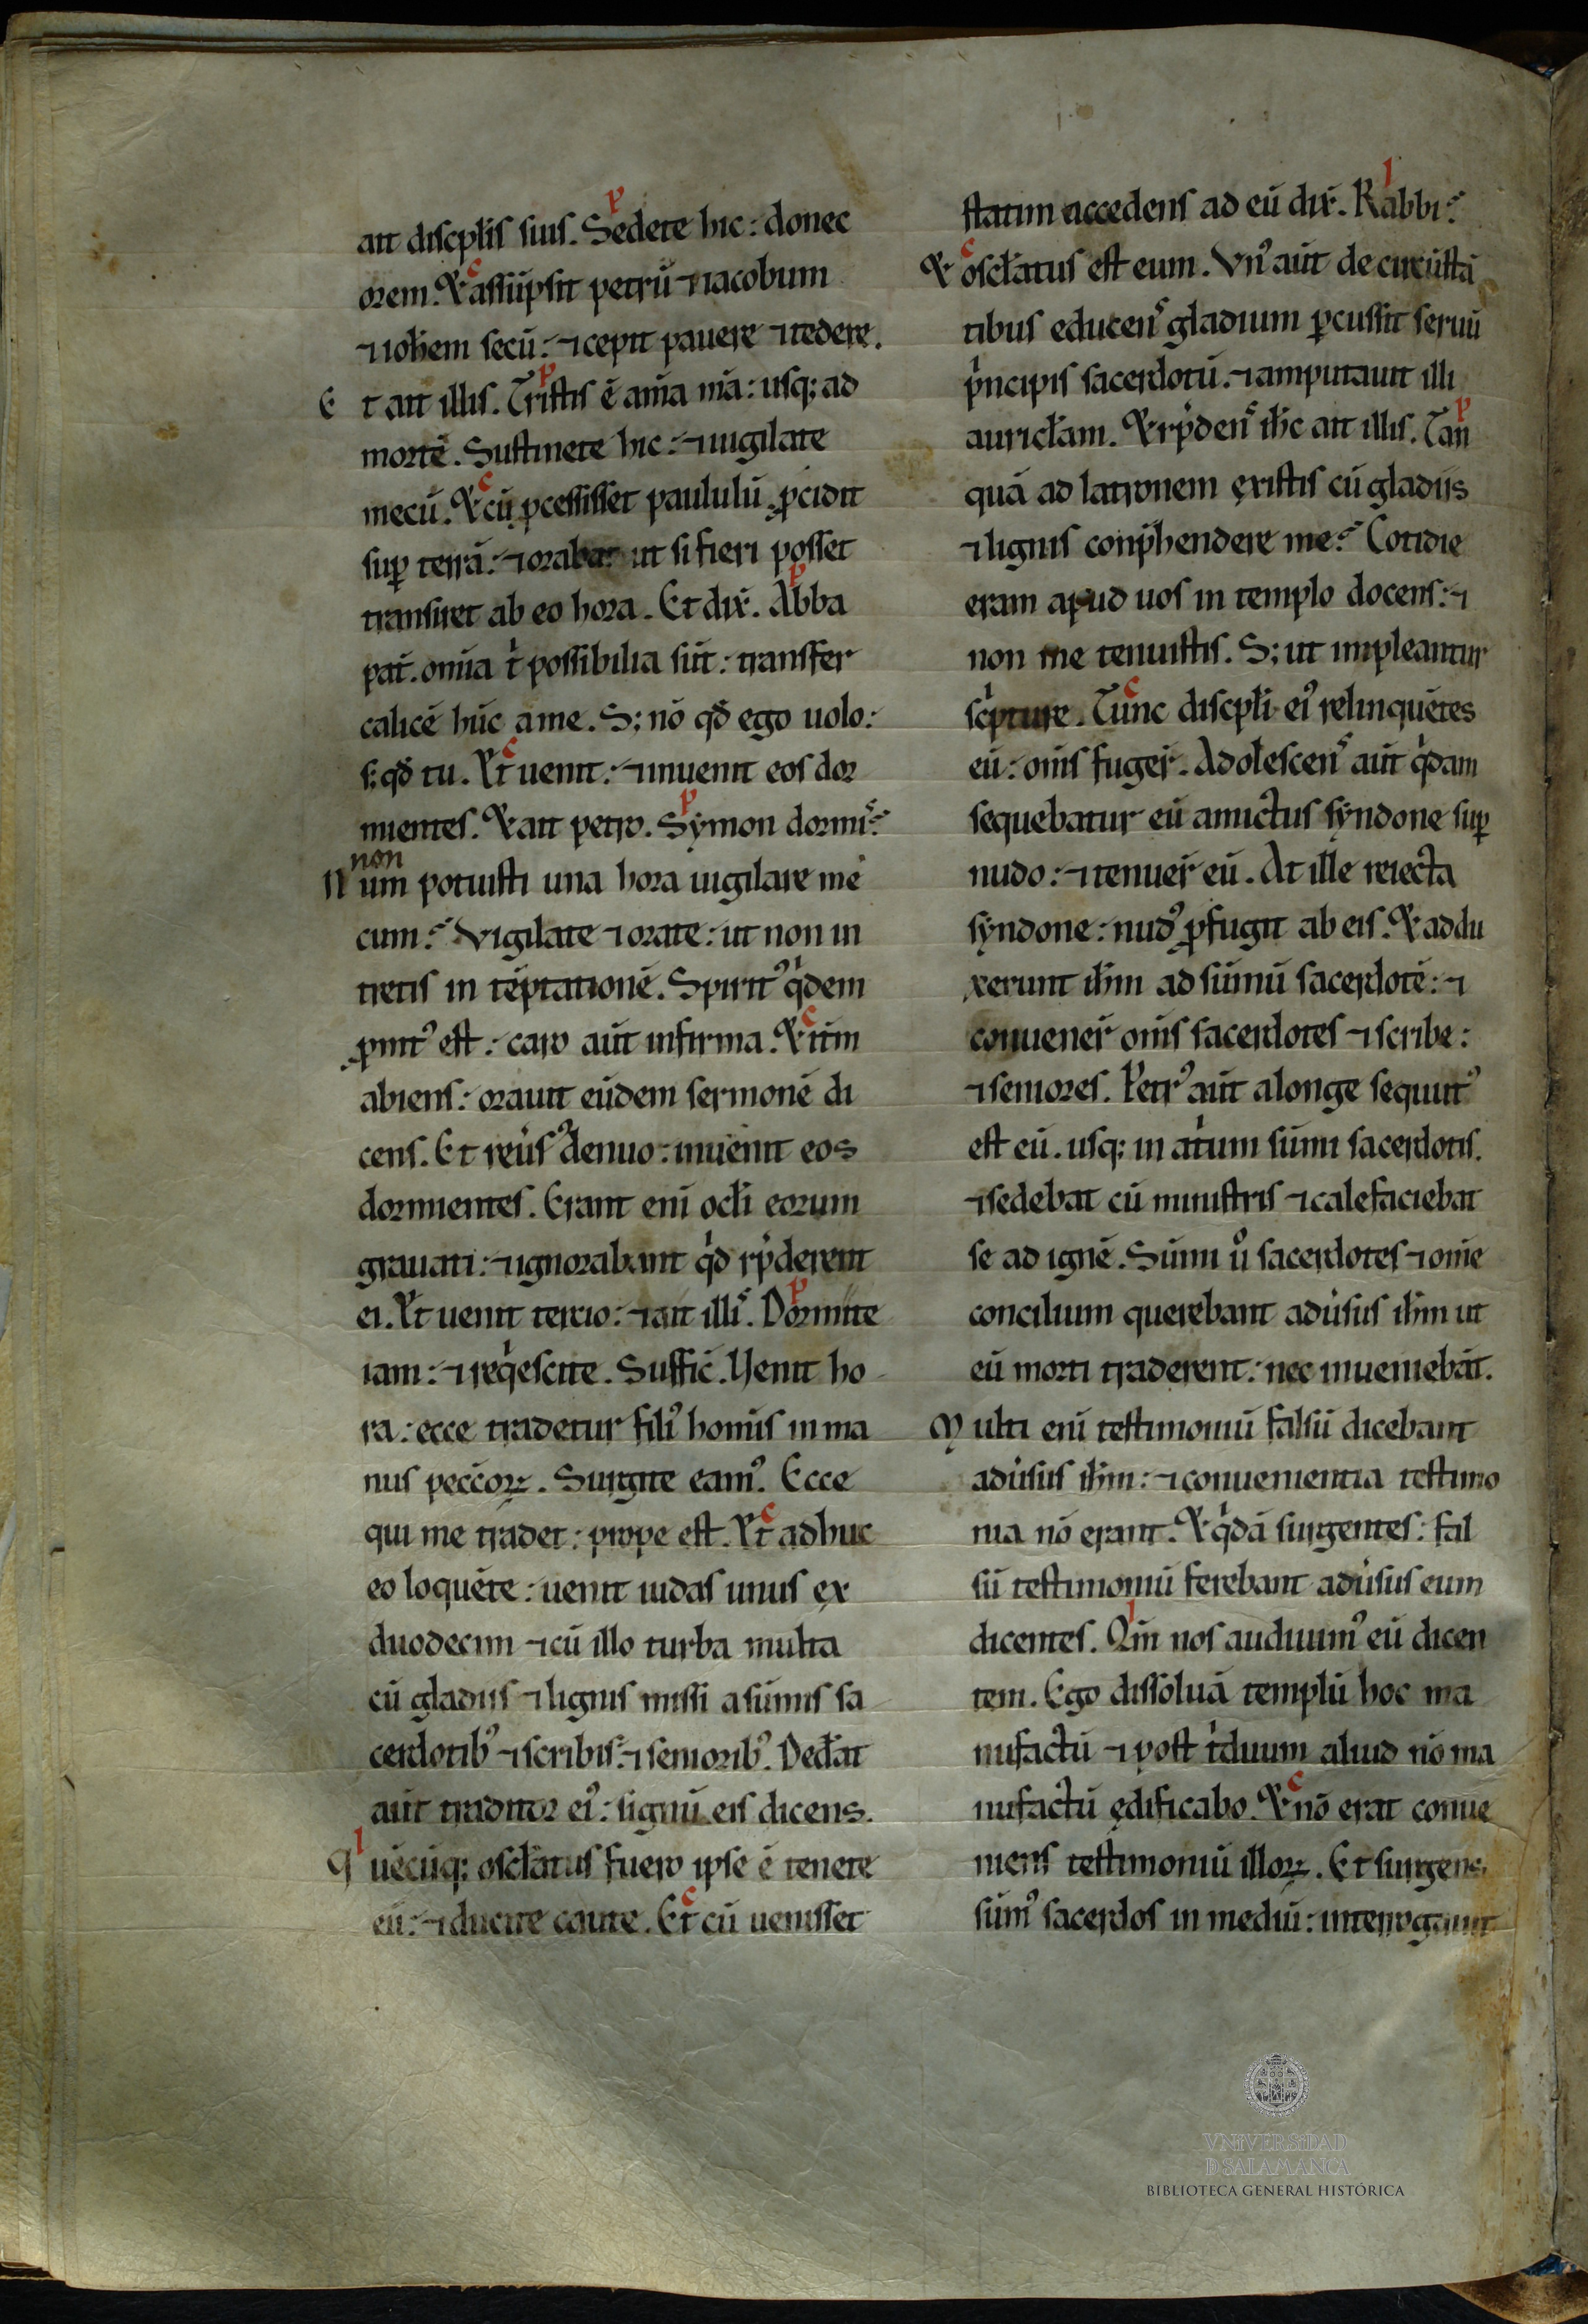 ait discpłis suis. Sedete hic: donec
orem. Et assūpsit petrū ⁊ iacobum
⁊ ioħem secū: ⁊ cepit pauere ⁊ tedere.
Et ait illis. Tristis ē aīa m̄a: usq; ad
mortē. Sustinete hic: ⁊ uigilate
mecū. Et cū ꝓcessisset paululū ꝓcidit
suꝑ terrā: ⁊ orabat ut si fieri posset
transiret ab eo hora. Et dix̄. Abba
pat̄. om̄ia tⁱ possibilia sūt: transfer
calicē hūc a me. S; nō qđ ego uolo:
s; qđ tu. Et uenit: ⁊ inuenit eos dor
mientes. Et ait petro. Symon dormis:
non
Num potuisti una hora uigilare me
cum: Vigilate ⁊ orate: ut non in
tretis in tēptationē. Spiritꝰ qⁱdem
ꝓmtꝰ est: caro aūt infirma. Et itm̄
abiens: orauit eūdem sermonē di
cens. Et reūsꝰ denuo: inuenit eos
dormientes. Erant eni ocłi eorum
grauati: ⁊ ignorabant qⁱd rn̄derent
ei. Et uenit tercio: ⁊ ait illis. Dormite
iam: ⁊ reqⁱescite. Suffic̄. Venit ho
ra: ecce tradetur filiꝰ homīs in ma
nus pecc̄oꝝ. Surgite eamꝰ. Ecce
qui me tradet: prope est. Et adhuc
eo loquēte: uenit iudas unus ex
duodecim ⁊ cū illo turba multa
cū gladiis ⁊ lignis missi a sūmis sa
cerdotibꝰ ⁊ scribis: ⁊ senioribꝰ. Dedāt
aūt traditor eiꝰ: signū eis dicens.
Quēcūq; oscłatus fuero ipse ē tenete
eū: ⁊ ducite caute. Et cū uenisset
statim accedens ad eū dix̄. Rabbi:
Et oscłatus est eum. Vnꝰ aūt de circūstā
tibus educens gladium ꝑcussit seruū
pⁱncipis sacerdotū. ⁊ amputauit illi
auricłam. Et rn̄dens ih̄c ait illis. Tan
quā ad latronem existis cū gladiis
⁊ lignis conp̄hendere me: Cotidie
eram apud uos in templo docens: ⁊
non me tenuistis. S; ut impleantur
scⁱpture. Tunc discpłi eiꝰ relinquētes
eū: om̄s fuger̄. Adolescens aūt qⁱdam
sequebatur eū amictus syndone suꝑ
nudo: ⁊ tenuer̄ eū. At ille reiecta
syndone: nudꝰ ꝓfugit ab eis. Et addu
xerunt ih̄m ad sūmū sacerdotē: ⁊
conuener̄ om̄s sacerdotes ⁊ scribe:
⁊ seniores. Petrꝰ aūt a longe sequutꝰ
est eū. usq; in atⁱum sūmi sacerdotis.
⁊ sedebat cū ministris ⁊ calefaciebat
se ad ignē. Sūmi uͦ sacerdotes ⁊ om̄e
concilium querebant adūsus ih̄m ut
eū morti traderent: nec inueniebāt.
Multi eni testimoniū falsū dicebant
adūsus ih̄m: ⁊ conuenientia testimo
nia nō erant. Et qⁱdā surgentes: fal
sū testimoniū ferebant adūsus eum
dicentes. Qm̄ nos audiuimꝰ eū dicen
tem. Ego dissoluā templū hoc ma
nufactū ⁊ post tⁱduum aliud nō ma
nufactū ędificabo. Et nō erat conue
niens testimoniū illoꝝ. Et surgens
sūmꝰ sacerdos in mediū: interrogauit
VNIVERSIDAD
D SALAMANCA
BIBLIOTECA GENERAL HISTÓRICA